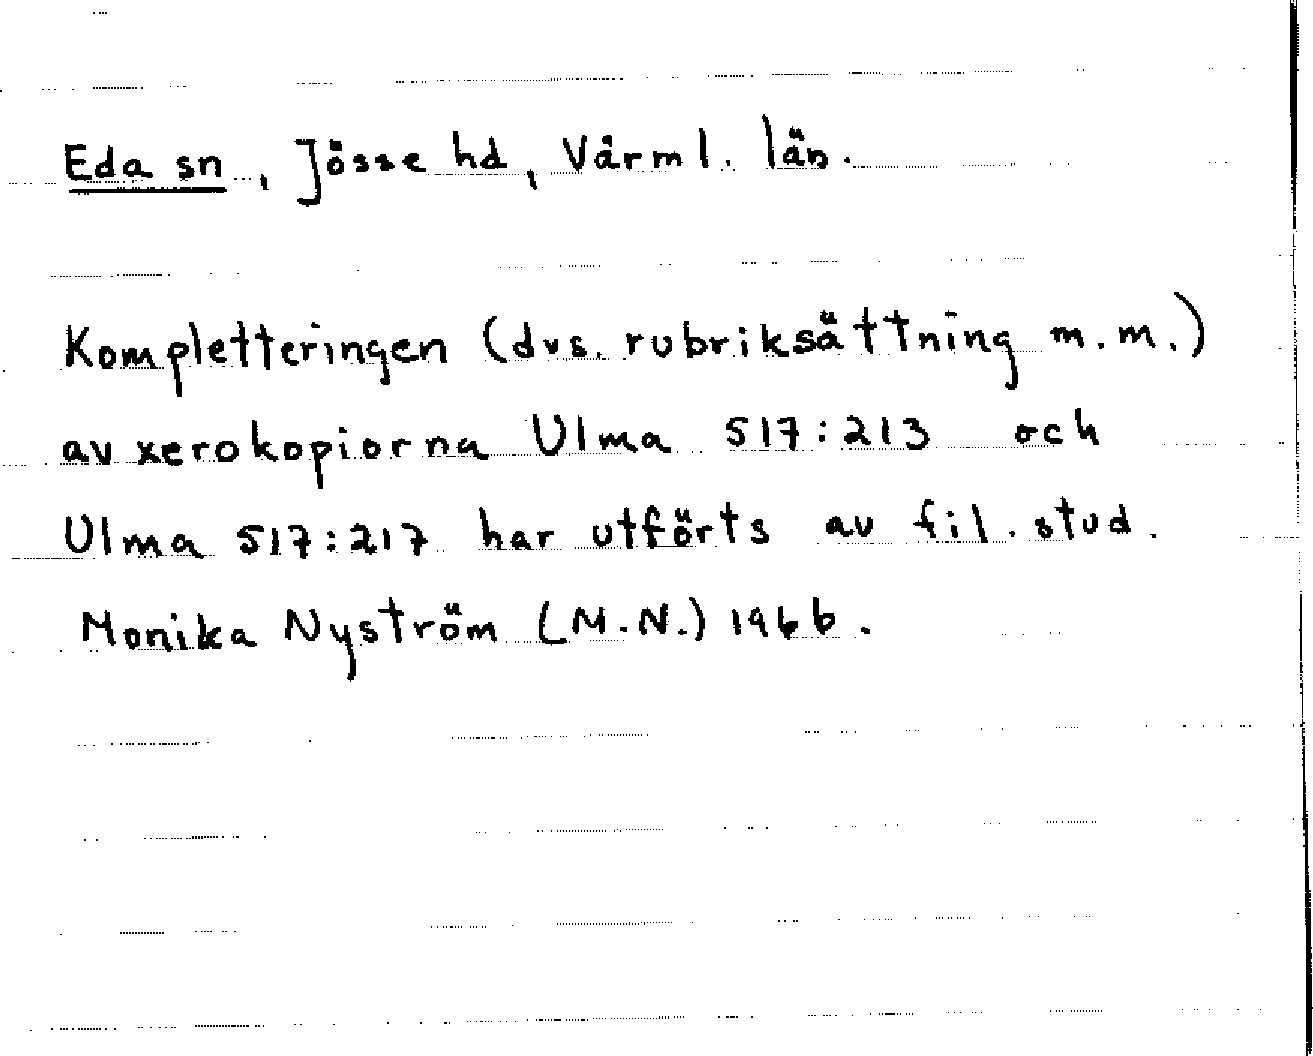 Eda sn, Jösse hd, Värml. län.
Kompletteringen (dvs. rubriksättning m.m.)
av xerokopiorna Ulma 517:213 och
Ulma 517:217 har utförts av fil. stud.
Monika Nyström (M.N.) 1966.